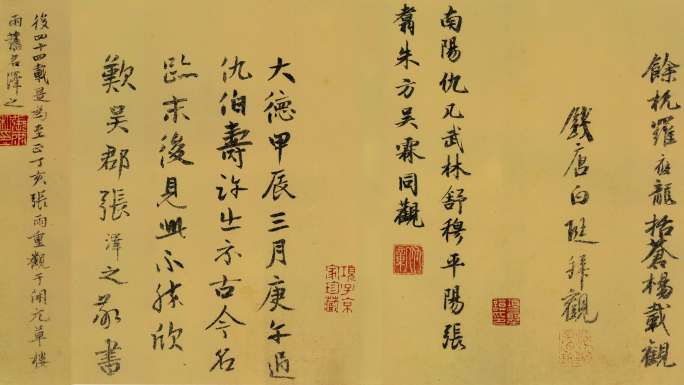 餘杭羅應龍括蒼楊載觀
錢唐白珽拜觀
南陽仇几武林舒穆平陽張
翥朱方吳霖同觀
大德甲辰三月庚午過
仇伯壽許出示古今名
蹟末後見此不勝欣
歎吳郡張澤之敬書
後四十四載是為至正丁亥張雨重觀于開元草樓
雨舊名澤之
項子京家珍藏